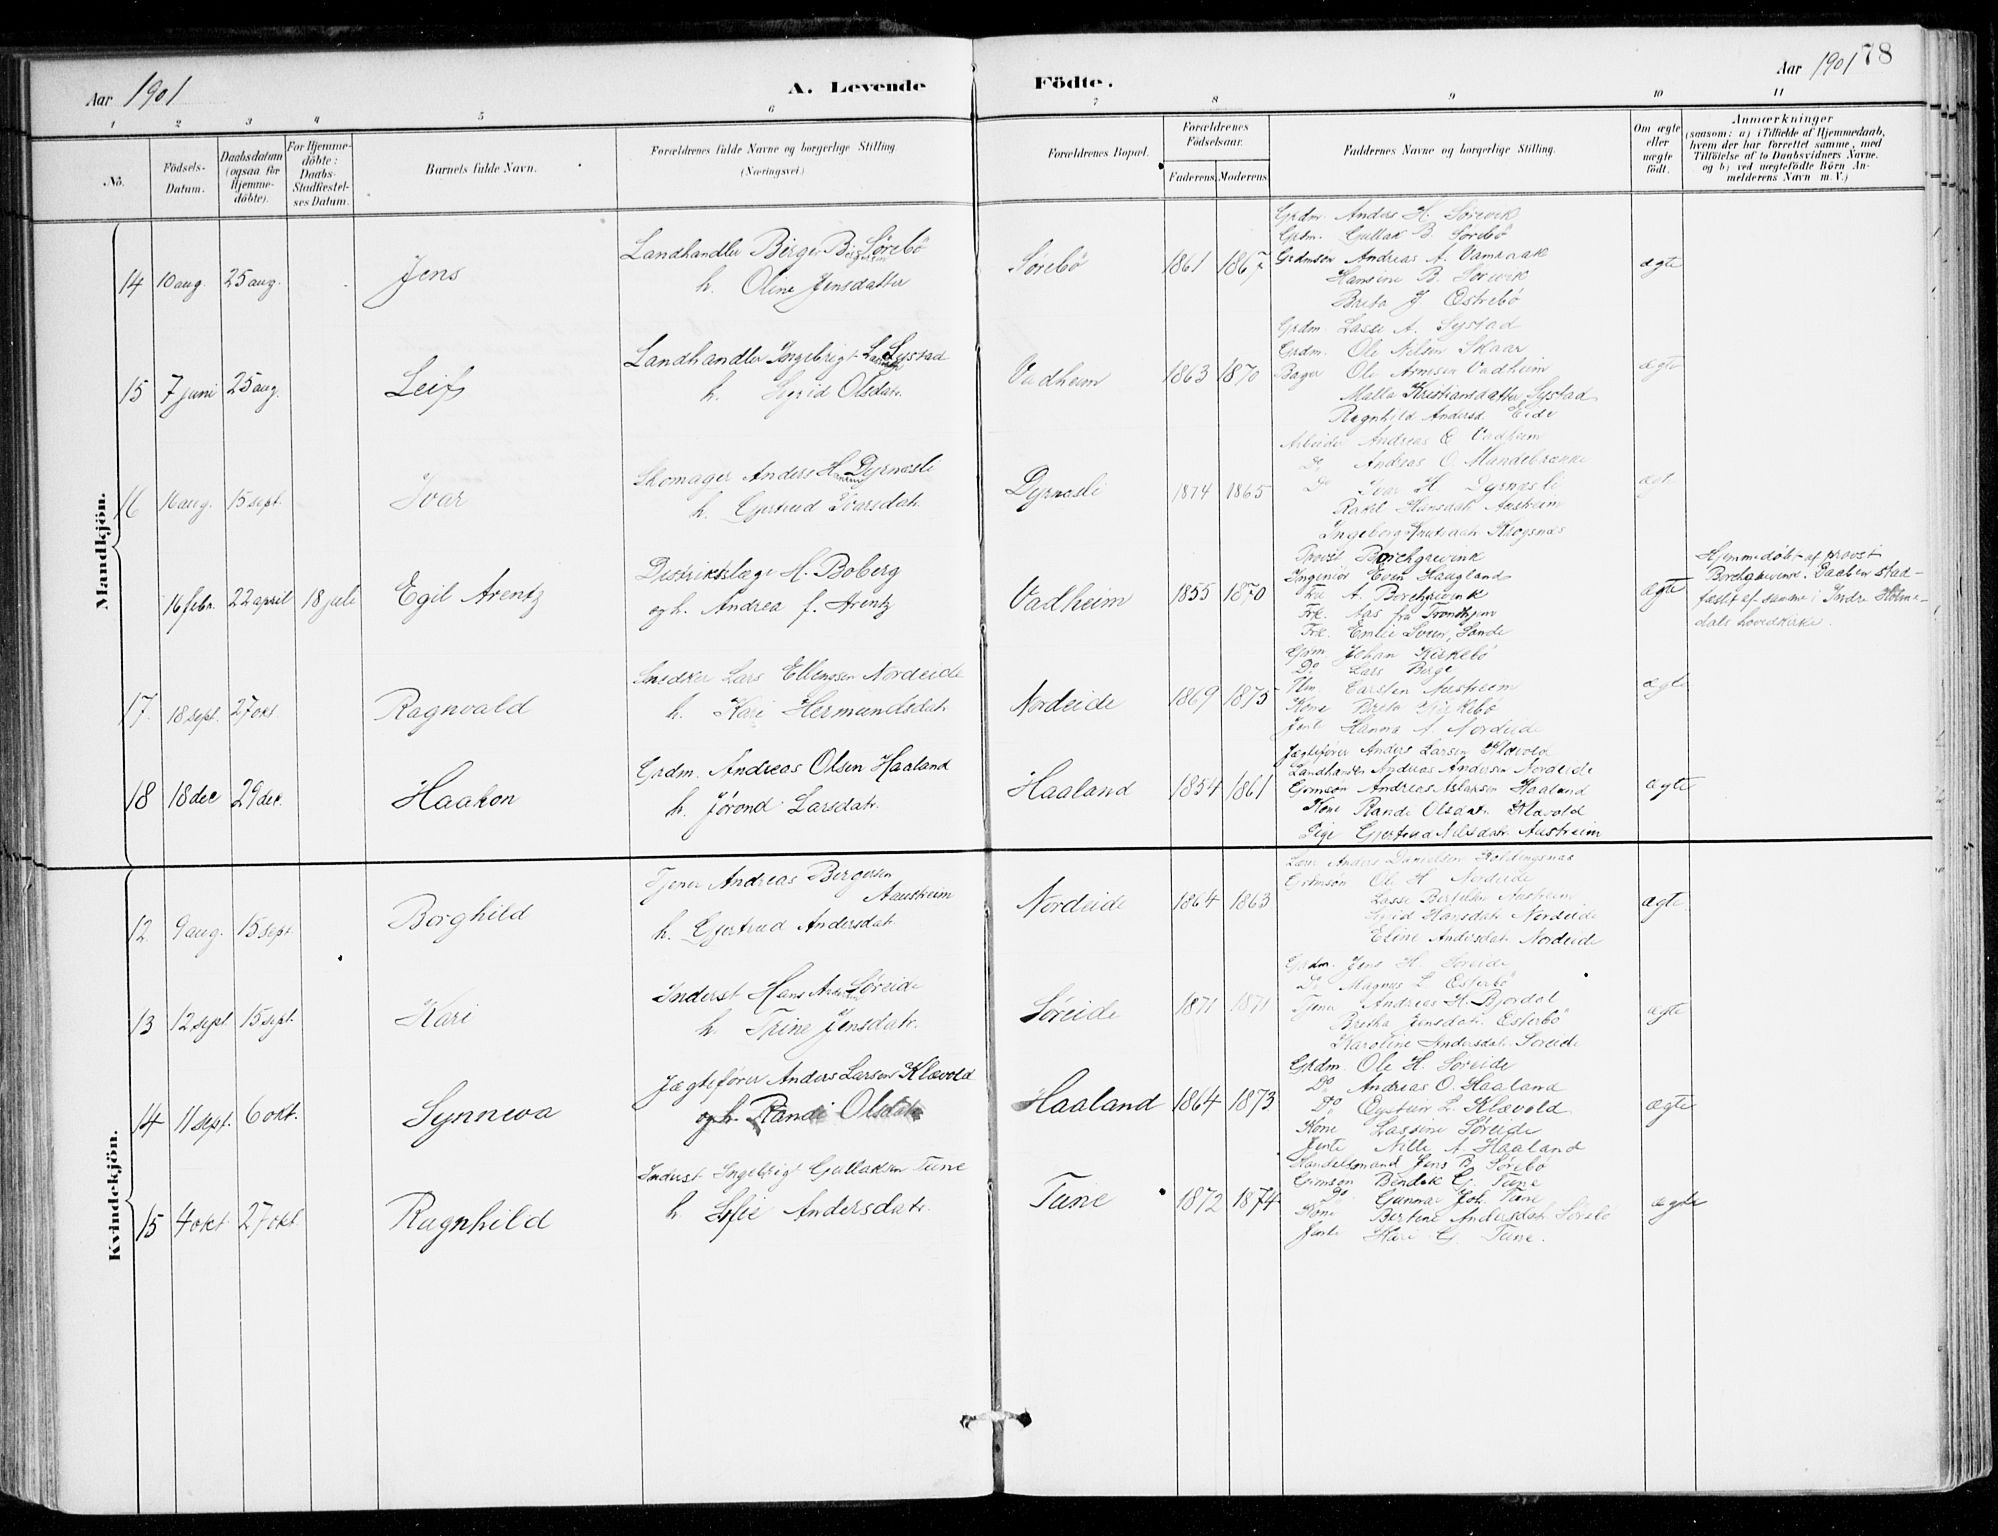 Aar 1901
A. Levende Födte.
Aar 1901
78
1 2 3 4 5 6 7 8 9 10 11
No.
Födsels-Datum.
Daabsdatum (ogsaa for Hjemmedöbte).
For Hjemmedöbte: Daabs-Stadfæstelses Datum.
Barnets fulde Navn.
Forældrenes fulde Navne og borgerlige Stilling.
(Næringsvei.)
Forældrenes Bopæl.
Forældrenes Födselsaar.
Faderens. Moderens.
Faddernes Navne og borgerlige Stilling.
Om ægte eller uægte födt.
Anmærkninger
(saasom: a) i Tilfælde af Hjemmedaab, hvem der har forrettet samme, med Tilföielse af to Daabsvidners Navne. og b) ved uægtefödte Börn Anmelderens Navn m. V.)
Mandkjön.
14 10 aug. 25 aug. Jens
Landhandler Berge Sørebö
h. Oline Jensdatter
Sørebö 1861 1867
Grdm. Anders H. Sørevik
Grdm. Gullak B. Sørebö
Grdmsøn Andreas A. Vamraak
Hansine B. Sørevik
Brita J. Østrebö
ægte
15 7 juni 25 aug. Leif
Landhandler Ingebrigt Systad
h. Sigrid Olsdatr.
Vadheim 1863 1870
Grdm. Lasse A. Systad
Grdm. Ole Nilsen Skaar
Bager Ole Arnesen Vadheim
Malla Kristiansdatter Systad
Ragnhild Andersd. Eide
ægte
16 16 aug. 15 sept. Ivar
Skomager Anders H. Dyrnesli
h. Gjertrud Ivarsdatr.
Dyrnesli 1874 1865
Arbeider Andreas O. Vadheim
Do Andreas O.
Do Ivar H. Dyrnesli
Rakel Hansdatr. Austreim
Ingeborg Knutsdatr. Skogsnæs
ægt
16 febr. 22 april 18 juli Egil Arentz
Distriktslæge H. Boberg
og h. Andrea f. Arentz
Vadheim 1855 1870
Provst Borchgrevink
Ingeniør Even Haugland
Fru A. Borchgrevink
Frk. Aas fra Trondhjem
Frk. Emlie Sande
ægte
Hjemmedøbt af provst
Borchgrevink. Daaben stad-
fæstet af samme i Indre Holme-
dals hovedkirke.
17. 18 sept. 27 okt. Ragnvald
Snedker Lars Ellingsen Nordeide
h. Kari Hermundsdatr.
Nordeide 1869 1875
Grdm Johan Kirkebö
Do Lars Berge
Um. Carsten Austreim
Kone Brita Kirkebö
Jente Hanna A. Nordeide
ægte
18 18 dec 29 dec. Haakon
Grdm. Andreas Olsen Haaland
h. Jørond Larsdatr.
Haaland 1854 1861
Jægtefører Anders Larsen Klævold
Landhandler Andreas Andersen Nordeide
Grdmsøn Andreas Aslaksen Haaland
Kone Rande Olsdatr. Klævold
Pige Gjertrud Nilsdatr. Austreim
ægte
Kvindekjön.
12. 9 aug. 15 sept. Borghild
Tjener Andreas Bergersen
Aaustreim
h. Gjertrud Andersdatr.
Nordeide 1864 1863
Lærer Anders Danielsen
Grdmsøn Ole H. Nordeide
Lasse Austreim
Sigrid Hansdatr. Nordeide
Eline Andersdatr. Nordeide
ægte.
13 12 sept. 15 sept. Kari
Inderst Hans Søreide
h. Trine Jensdatr.
Søreide 1871 1871
Grdm. Jens H. Søreide
Do Magnus L. Esterbö
Tjener Andreas H. Bjordal
Bretha Jensdatr. Esterbö
Karoline Andersdatr. Søreide
ægte
14 11 sept. 6 okt. Synneva
Jægtefører Anders Larsen Klævold
og h. Randi Olsdatr.
Haaland 1864 1873
Grdm. Ole H. Søreide
Do Andreas O. Haaland
Do Eystein L. Klævold
Kone Lassine Søreide
Jente Nille A. Haaland
ægte
15 4 okt 27 okt. Ragnhild
Inderst Ingebrigt Gullaksen Tune
h. Sofie Andersdatr.
Tune 1872 1874
Handelsmand Jens B. Sørebö
Grdmsøn Bendik G. Tune
Do Gunnar Joh. Tune
Kone Bertine Andersdatr. Sørebö
Jente Kari G. Tune.
ægte